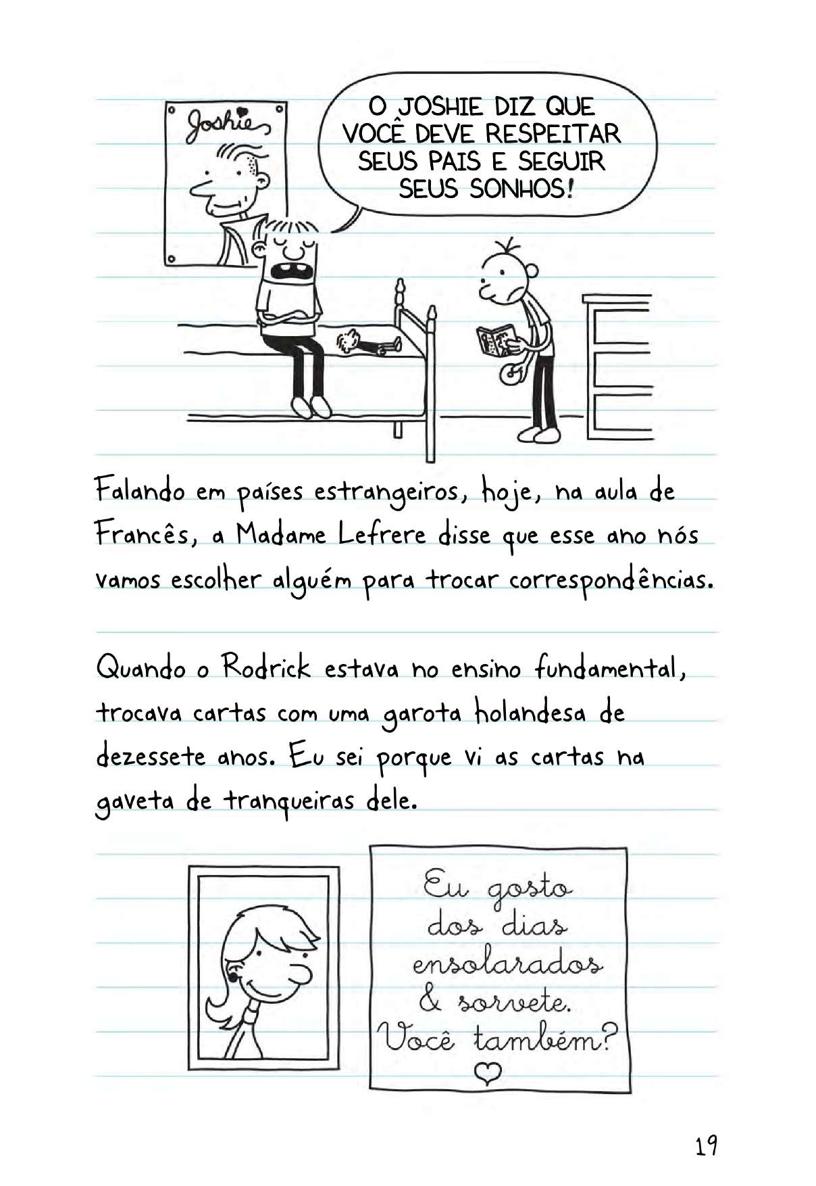 Joshie
O JOSHIE DIZ QUE
VOCÊ DEVE RESPEITAR
SEUS PAIS E SEGUIR
SEUS SONHOS!
Falando em países estrangeiros, hoje, na aula de
Francês, a Madame Lefrere disse que esse ano nós
vamos escolher alguém para trocar correspondências.
Quando o Rodrick estava no ensino fundamental,
trocava cartas com uma garota holandesa de
dezessete anos. Eu sei porque vi as cartas na
gaveta de tranqueiras dele.
Eu gosto
dos dias
ensolarados
& sorvete.
Você também?
19